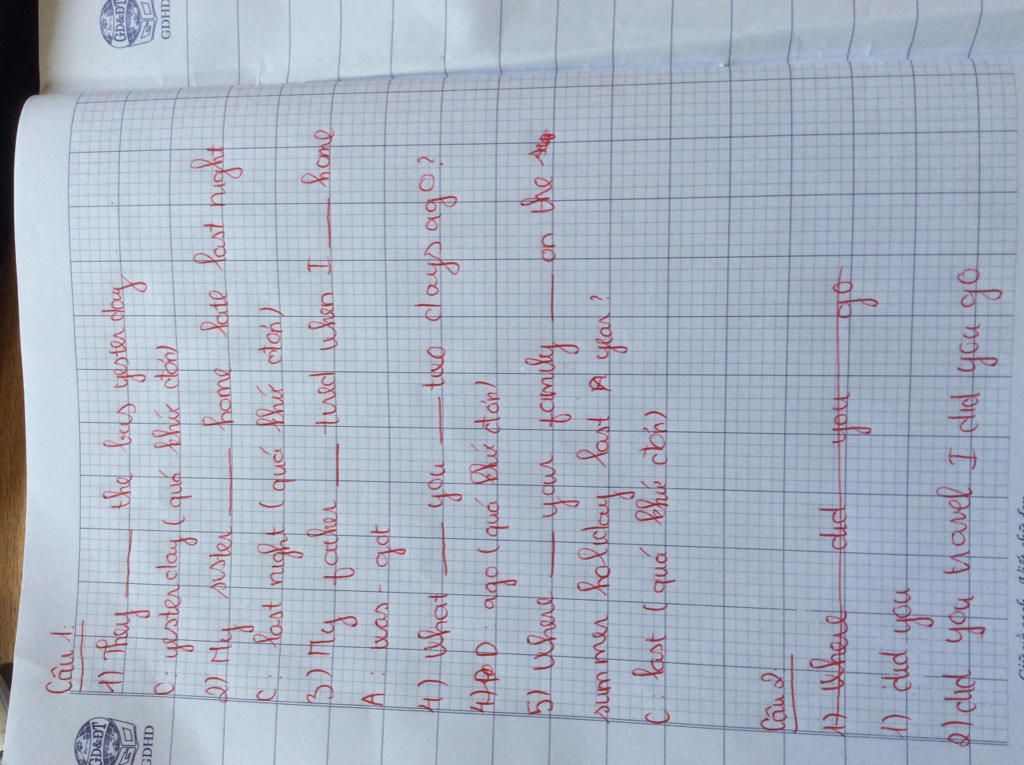 GD&ĐT
GDHD
Câu 1:
1) They ___ the bus yesterday
C: yesterday (quá khứ đơn)
2) My sister ___ home late last night
C: last night (quá khứ đơn)
3) My father ___ tired when I ___ home
A: was - got
4) What ___ you ___ two days ago?
4) D: ago (quá khứ đơn)
5) Where ___ your family ___ on the
summer holiday last year?
C: last (quá khứ đơn)
Câu 2:
1) Where did you go
1) did you
2) did you travel I did you go
GD&ĐT
GDHD